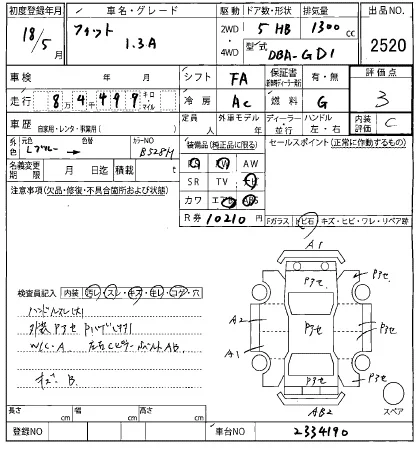 初度登録年月 車名・グレード 駆動 ドア数・形状 排気量 出品NO.
18/5月 フィット 1.3A 2WD・4WD 5 HB 1300cc 2520
型式 DBA-GD1
車検 年 月 シフト FA 保証書 有・無 評価点
走行 84499 キロ マイル 冷房 AC 燃料 G 3
車歴 自家用・レンタ・事業用( ) 定員 人 外車モデル 年 ディーラー・並行 ハンドル 左・右 内装評価 C
外色 元色 色替 カラーNO B528M
装備品(純正品に限る) セールスポイント(正常に動作するもの)
名義変更期限 月 日迄 積載 t
PS PW AW
SR TV ナビ
カワ エアB ABS
注意事項(欠品・修復・不具合箇所および状態)
R券 10210円
Fガラス トビ石 キズ・ヒビ・ワレ・リペア跡
A1
Pアセ Pアセ
A2 Pアセ Pアセ
A1
Pアセ Pアセ
AB2
スペア
検査員記入 内装 汚レ・スレ・キズ・色レ・コゲ・穴
ハンドルスレ
外装Pアセ
W/C・A
キズ B
長さ cm 幅 cm 高さ cm
登録NO 車台NO 2334190